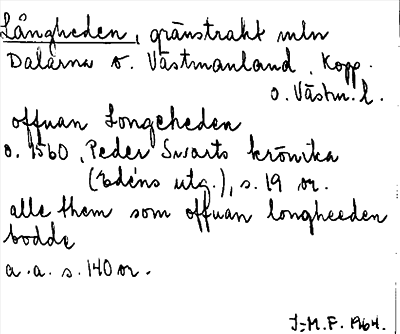 Långheden, gränstrakt mln
Dalarna o. Västmanland, Kopp.
o. Västm. l.
offuan Longeheden
o. 1560, Peder Swarts krönika
(Edéns utg.), s. 19 or.
alle them som offuan longheeden
bodde
a. a. s. 140 or.
J-M. F. 1964.